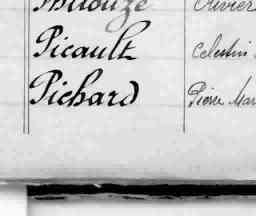 Olivier
Picault Celestin
Pichard Pierre Mar